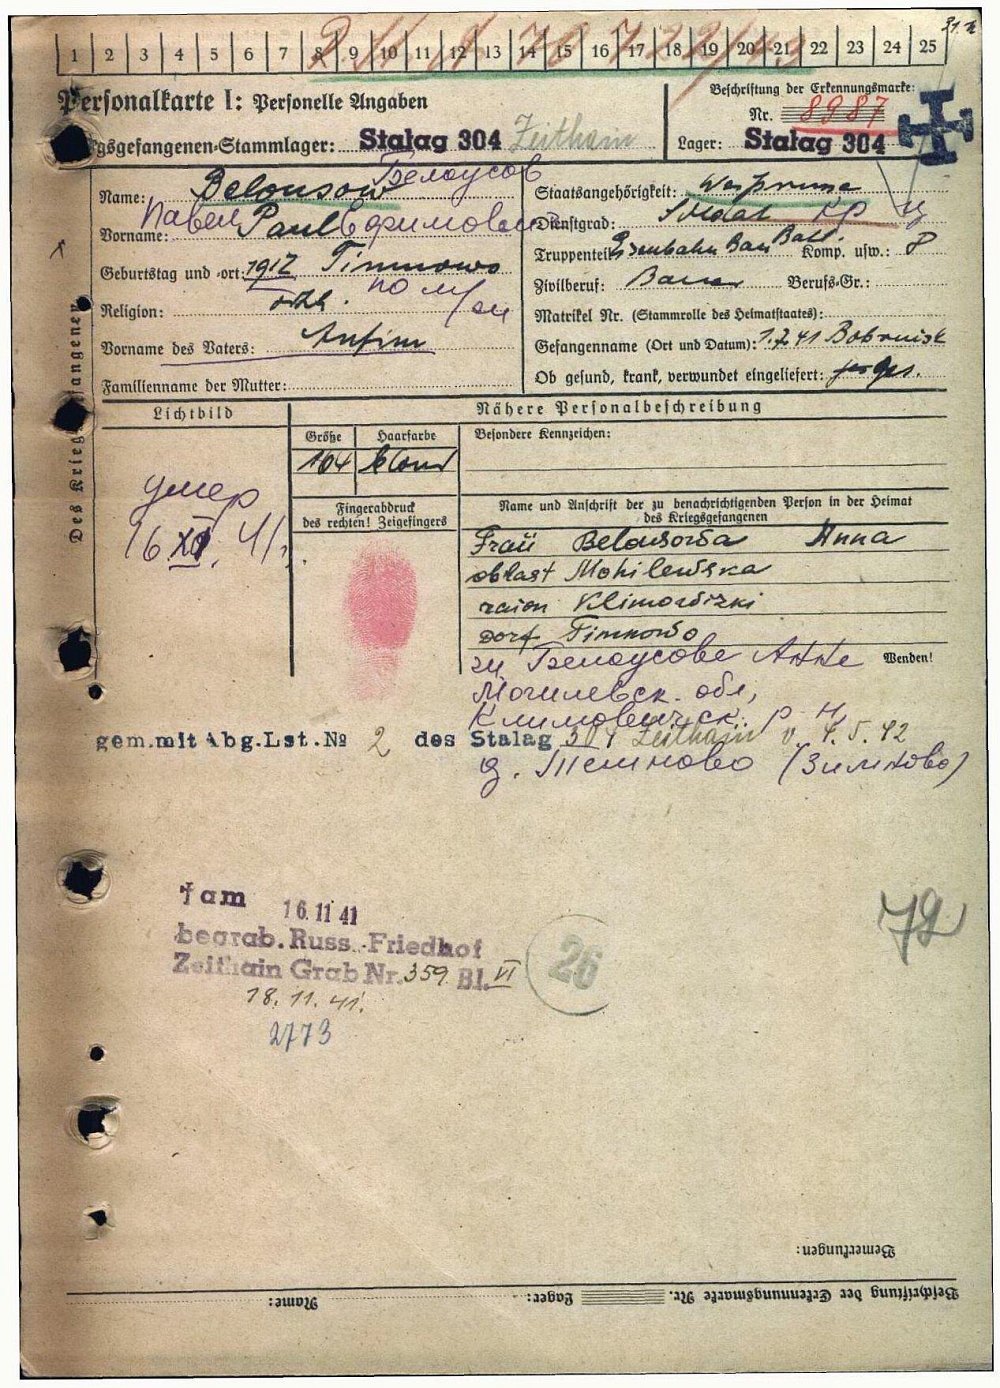 31.
1 2 3 4 5 6 7 8 9 10 11 12 13 14 15 16 17 18 19 20 21 22 23 24 25
Personalkarte I: Personelle Angaben
Beschriftung der Erkennungsmarke:
Nr. 8987
gsgefangenen-Stammlager: Stalag 304 Zeithain
Lager: Stalag 304
Des Kriegsgefangenen
Name: Belousow Белоусов
Павел Ефимович
Vorname: Paul
Geburtstag und -ort: 1912 Timnowo
Religion: orth.
Vorname des Vaters: Anfim
Familienname der Mutter:
Staatsangehörigkeit: Weißrusse
Dienstgrad: Soldat кр-ц
Truppenteil: Eisenbahn Bau Batl. Komp. usw.: 8
Zivilberuf: Bauer Berufs-Gr.:
Matrikel Nr. (Stammrolle des Heimatstaates):
Gefangenname (Ort und Datum): 1.7.41 Bobruisk
Ob gesund, krank, verwundet eingeliefert: ges.
Lichtbild
умер
16 XI 41г.
Nähere Personalbeschreibung
Größe Haarfarbe Besondere Kennzeichen:
164 blond
Fingerabdruck
des rechten! Zeigefingers
Name und Anschrift der zu benachrichtigenden Person in der Heimat
des Kriegsgefangenen
Frau Belousowa Anna
oblast Mohilewska
raion Klimowizki
Dorf Timnowo
Белоусове Анне
Wenden!
Могилевск. обл,
Климовичск. р-н
gem.mit Abg.Lst.№ 2 des Stalag 304 Zeithain v. 4.5.42
д. Темново (Зимново)
† am 16.11 41
begrab. Russ. Friedhof
Zeithain Grab Nr. 359 Bl. VI
18.11.41.
2773
26
72
Bemerkungen:
Name: Lager: Beschriftung der Erkennungsmarke Nr.